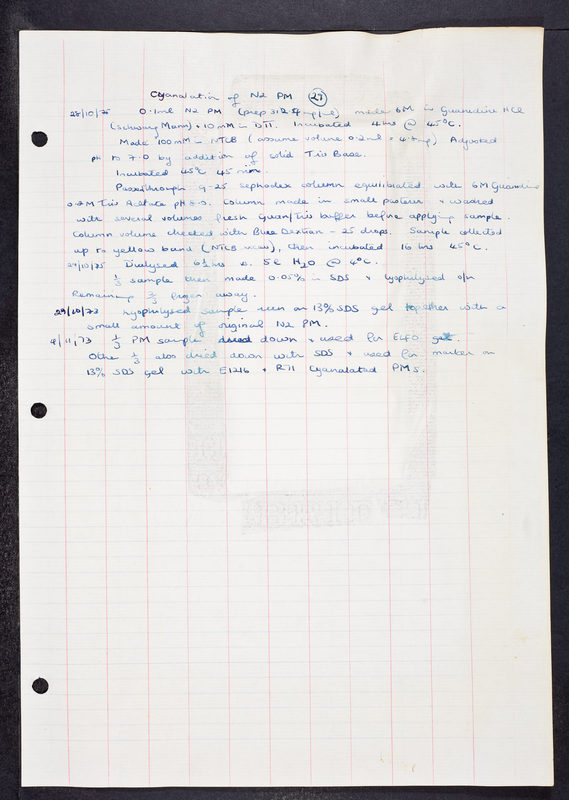 Cyanalation of N2 PM (27)
28/10/75 0.1ml N2 PM (prep 312 mg/ml) made 6M in Guanidine HCl
(Schwarz Mann) + 10 mM in DTT. Incubated 4 hrs @ 45°C.
Made 100 mM in NTCB (assume volume 0.2ml = 4.4mg) Adjusted
pH to 7.0 by addition of solid Tris Base.
Incubated 45°C 45 min.
Passed through G-25 sephadex column equilibrated with 6M Guanidine
0.2M Tris Acetate pH 8.0. Column made in small pasteur & washed
with several volumes fresh Guan/Tris buffer before applying sample.
Column volume checked with Blue Dextran - 25 drops. Sample collected
up to yellow band (NTCB), then incubated 16 hrs 45°C.
29/10/75 Dialysed 6½ hrs 5l H2O @ 4°C.
⅓ sample then made 0.05% in SDS & lyophilysed o/n
Remaining ⅔ frozen away.
29/10/73 Lyophilysed sample run on 13% SDS gel together with a
small amount of original N2 PM.
4/11/73 ⅓ PM sample dried down & used for E4FO gel.
Other ⅓ also dried down with SDS & used for marker on
13% SDS gel with E1216 & R71 Cyanalated PMs.